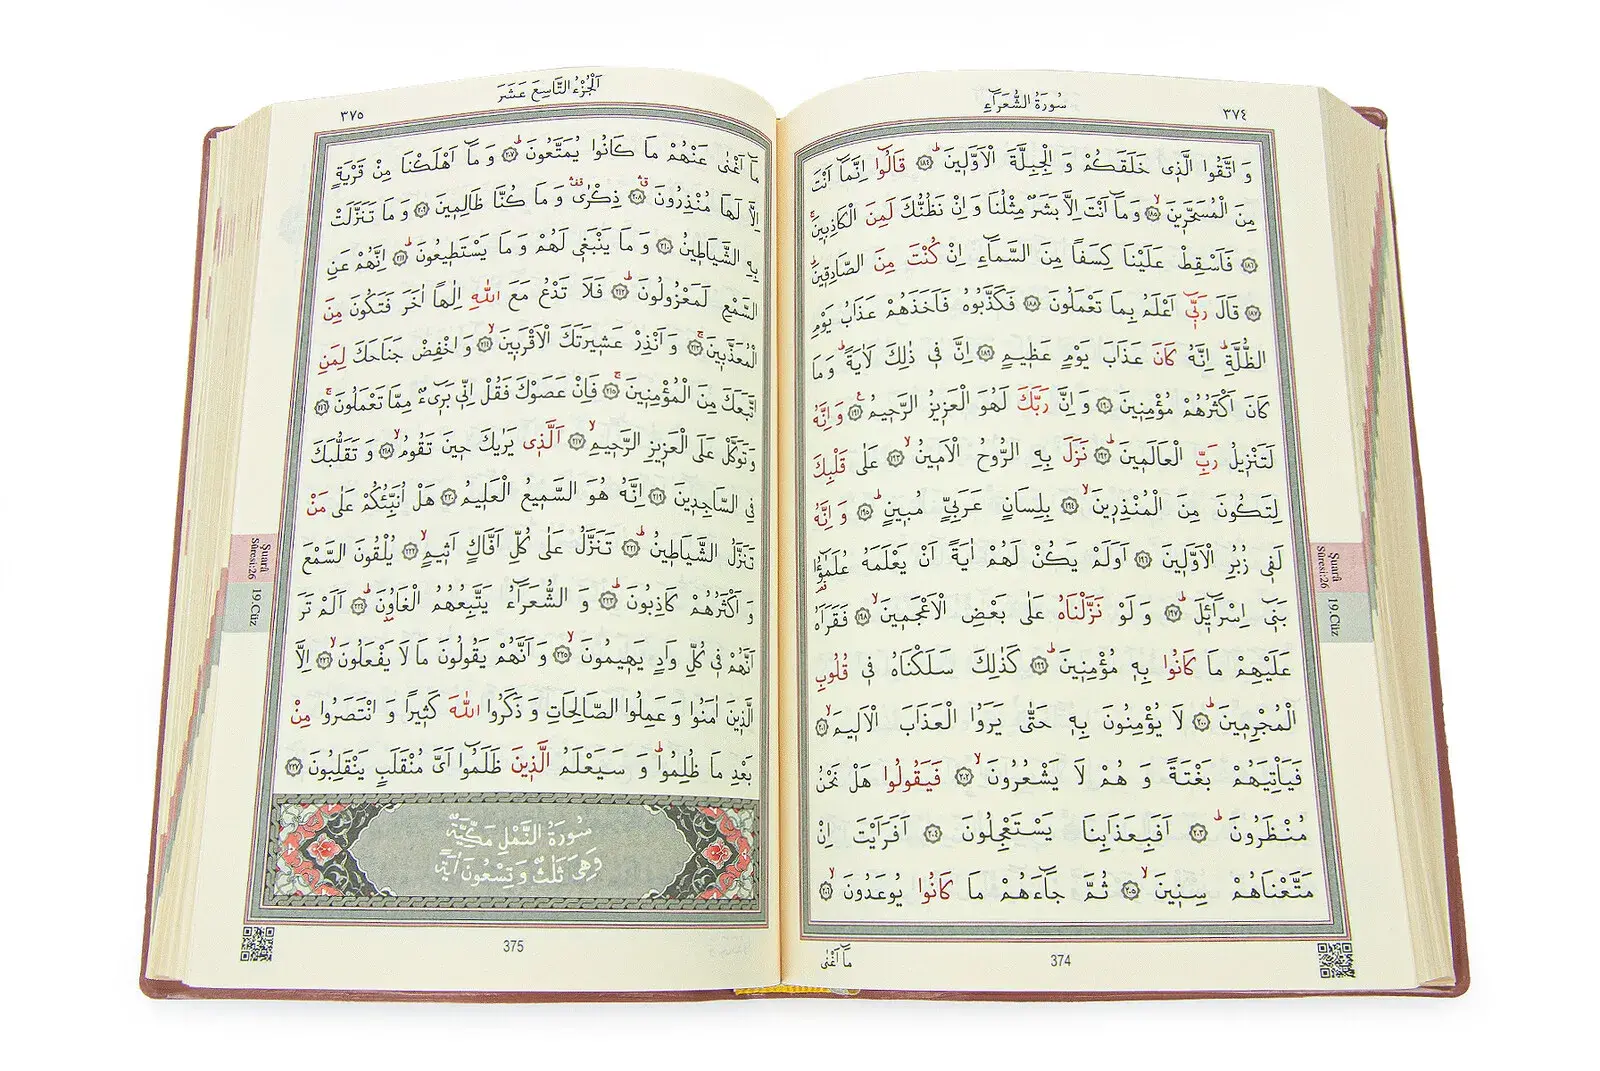 سُورَةُ الشُّعَرَاءِ
٣٧٤
وَ اتَّقُوا الَّذِى خَلَقَكُمْ وَ الْجِبِلَّةَ الْاَوَّلِينَ ﴿١٨٤﴾ قَالُوا اِنَّمَا اَنْتَ
مِنَ الْمُسَحَّرِينَ ﴿١٨٥﴾ وَمَا اَنْتَ اِلَّا بَشَرٌ مِثْلُنَا وَ اِنْ نَظُنُّكَ لَمِنَ الْكَاذِبِينَ
﴿١٨٦﴾ فَاَسْقِطْ عَلَيْنَا كِسَفًا مِنَ السَّمَاءِ اِنْ كُنْتَ مِنَ الصَّادِقِينَ
﴿١٨٧﴾ قَالَ رَبِّى اَعْلَمُ بِمَا تَعْمَلُونَ ﴿١٨٨﴾ فَكَذَّبُوهُ فَاَخَذَهُمْ عَذَابُ يَوْمِ
الظُّلَّةِ اِنَّهُ كَانَ عَذَابَ يَوْمٍ عَظِيمٍ ﴿١٨٩﴾ اِنَّ فِى ذٰلِكَ لَاٰيَةً وَمَا
كَانَ اَكْثَرُهُمْ مُؤْمِنِينَ ﴿١٩٠﴾ وَ اِنَّ رَبَّكَ لَهُوَ الْعَزِيزُ الرَّحِيمُ ﴿١٩١﴾ وَ اِنَّهُ
لَتَنْزِيلُ رَبِّ الْعَالَمِينَ ﴿١٩٢﴾ نَزَلَ بِهِ الرُّوحُ الْاَمِينُ ﴿١٩٣﴾ عَلٰى قَلْبِكَ
لِتَكُونَ مِنَ الْمُنْذِرِينَ ﴿١٩٤﴾ بِلِسَانٍ عَرَبِىٍّ مُبِينٍ ﴿١٩٥﴾ وَ اِنَّهُ
لَفِى زُبُرِ الْاَوَّلِينَ ﴿١٩٦﴾ اَوَلَمْ يَكُنْ لَهُمْ اٰيَةً اَنْ يَعْلَمَهُ عُلَمٰؤُا
بَنِى اِسْرَائِلَ ﴿١٩٧﴾ وَ لَوْ نَزَّلْنَاهُ عَلٰى بَعْضِ الْاَعْجَمِينَ ﴿١٩٨﴾ فَقَرَاَهُ
عَلَيْهِمْ مَا كَانُوا بِهِ مُؤْمِنِينَ ﴿١٩٩﴾ كَذٰلِكَ سَلَكْنَاهُ فِى قُلُوبِ
الْمُجْرِمِينَ ﴿٢٠٠﴾ لَا يُؤْمِنُونَ بِهِ حَتّٰى يَرَوُا الْعَذَابَ الْاَلِيمَ ﴿٢٠١﴾
فَيَاْتِيَهُمْ بَغْتَةً وَ هُمْ لَا يَشْعُرُونَ ﴿٢٠٢﴾ فَيَقُولُوا هَلْ نَحْنُ
مُنْظَرُونَ ﴿٢٠٣﴾ اَفَبِعَذَابِنَا يَسْتَعْجِلُونَ ﴿٢٠٤﴾ اَفَرَاَيْتَ اِنْ
مَتَّعْنَاهُمْ سِنِينَ ﴿٢٠٥﴾ ثُمَّ جَاءَهُمْ مَا كَانُوا يُوعَدُونَ ﴿٢٠٦﴾
مَا اَغْنٰى
374
Şuarâ
Sûresi:26
19.Cüz
اَلْجُزْءُ التَّاسِعَ عَشَرَ
٣٧٥
مَا اَغْنٰى عَنْهُمْ مَا كَانُوا يُمَتَّعُونَ ﴿٢٠٧﴾ وَ مَا اَهْلَكْنَا مِنْ قَرْيَةٍ
اِلَّا لَهَا مُنْذِرُونَ ﴿٢٠٨﴾ ذِكْرٰى وَ مَا كُنَّا ظَالِمِينَ ﴿٢٠٩﴾ وَ مَا تَنَزَّلَتْ
بِهِ الشَّيَاطِينُ ﴿٢١٠﴾ وَ مَا يَنْبَغِى لَهُمْ وَ مَا يَسْتَطِيعُونَ ﴿٢١١﴾ اِنَّهُمْ عَنِ
السَّمْعِ لَمَعْزُولُونَ ﴿٢١٢﴾ فَلَا تَدْعُ مَعَ اللّٰهِ اِلٰهًا اٰخَرَ فَتَكُونَ مِنَ
الْمُعَذَّبِينَ ﴿٢١٣﴾ وَ اَنْذِرْ عَشِيرَتَكَ الْاَقْرَبِينَ ﴿٢١٤﴾ وَ اخْفِضْ جَنَاحَكَ لِمَنِ
اتَّبَعَكَ مِنَ الْمُؤْمِنِينَ ﴿٢١٥﴾ فَاِنْ عَصَوْكَ فَقُلْ اِنِّى بَرِىءٌ مِمَّا تَعْمَلُونَ ﴿٢١٦﴾
وَتَوَكَّلْ عَلَى الْعَزِيزِ الرَّحِيمِ ﴿٢١٧﴾ اَلَّذِى يَرٰيكَ حِينَ تَقُومُ ﴿٢١٨﴾ وَ تَقَلُّبَكَ
فِى السَّاجِدِينَ ﴿٢١٩﴾ اِنَّهُ هُوَ السَّمِيعُ الْعَلِيمُ ﴿٢٢٠﴾ هَلْ اُنَبِّئُكُمْ عَلٰى مَنْ
تَنَزَّلُ الشَّيَاطِينُ ﴿٢٢١﴾ تَنَزَّلُ عَلٰى كُلِّ اَفَّاكٍ اَثِيمٍ ﴿٢٢٢﴾ يُلْقُونَ السَّمْعَ
وَ اَكْثَرُهُمْ كَاذِبُونَ ﴿٢٢٣﴾ وَ الشُّعَرَاءُ يَتَّبِعُهُمُ الْغَاوُنَ ﴿٢٢٤﴾ اَلَمْ تَرَ
اَنَّهُمْ فِى كُلِّ وَادٍ يَهِيمُونَ ﴿٢٢٥﴾ وَ اَنَّهُمْ يَقُولُونَ مَا لَا يَفْعَلُونَ ﴿٢٢٦﴾ اِلَّا
الَّذِينَ اٰمَنُوا وَ عَمِلُوا الصَّالِحَاتِ وَ ذَكَرُوا اللّٰهَ كَثِيرًا وَ انْتَصَرُوا مِنْ
بَعْدِ مَا ظُلِمُوا وَ سَيَعْلَمُ الَّذِينَ ظَلَمُوا اَىَّ مُنْقَلَبٍ يَنْقَلِبُونَ ﴿٢٢٧﴾
سُورَةُ النَّمْلِ مَكِّيَّةٌ
وَهِىَ ثَلٰثٌ وَ تِسْعُونَ اٰيَةً
375
Şuarâ
Sûresi:26
19.Cüz